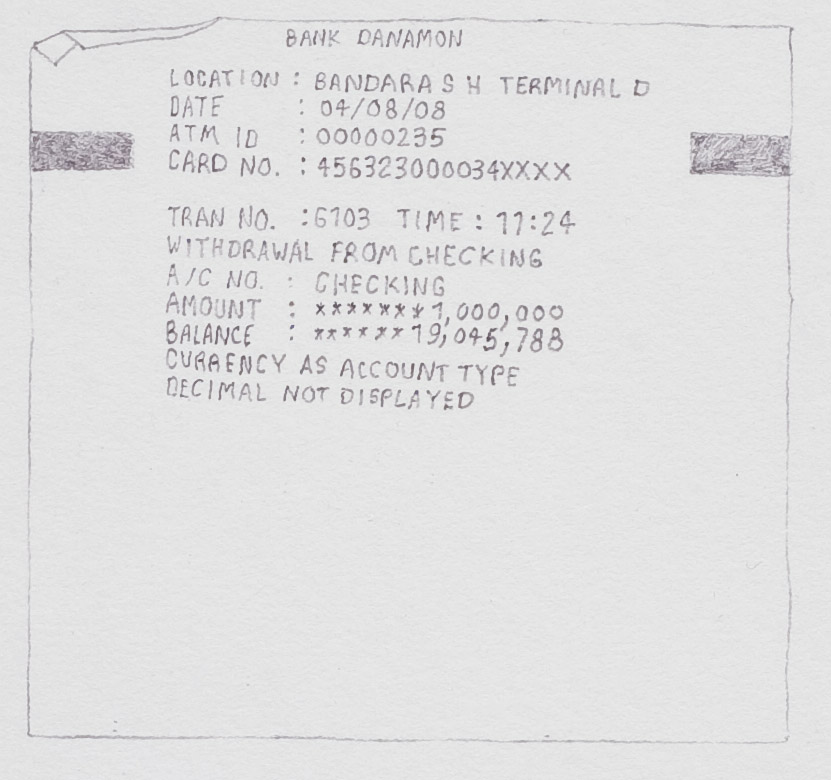 BANK DANAMON
LOCATION : BANDARA S H TERMINAL D
DATE : 04/08/08
ATM ID : 00000235
CARD NO. : 456323000034XXXX
TRAN NO. :6103 TIME : 11:24
WITHDRAWAL FROM CHECKING
A/C NO. : CHECKING
AMOUNT : *******1,000,000
BALANCE : ******19,045,788
CURRENCY AS ACCOUNT TYPE
DECIMAL NOT DISPLAYED